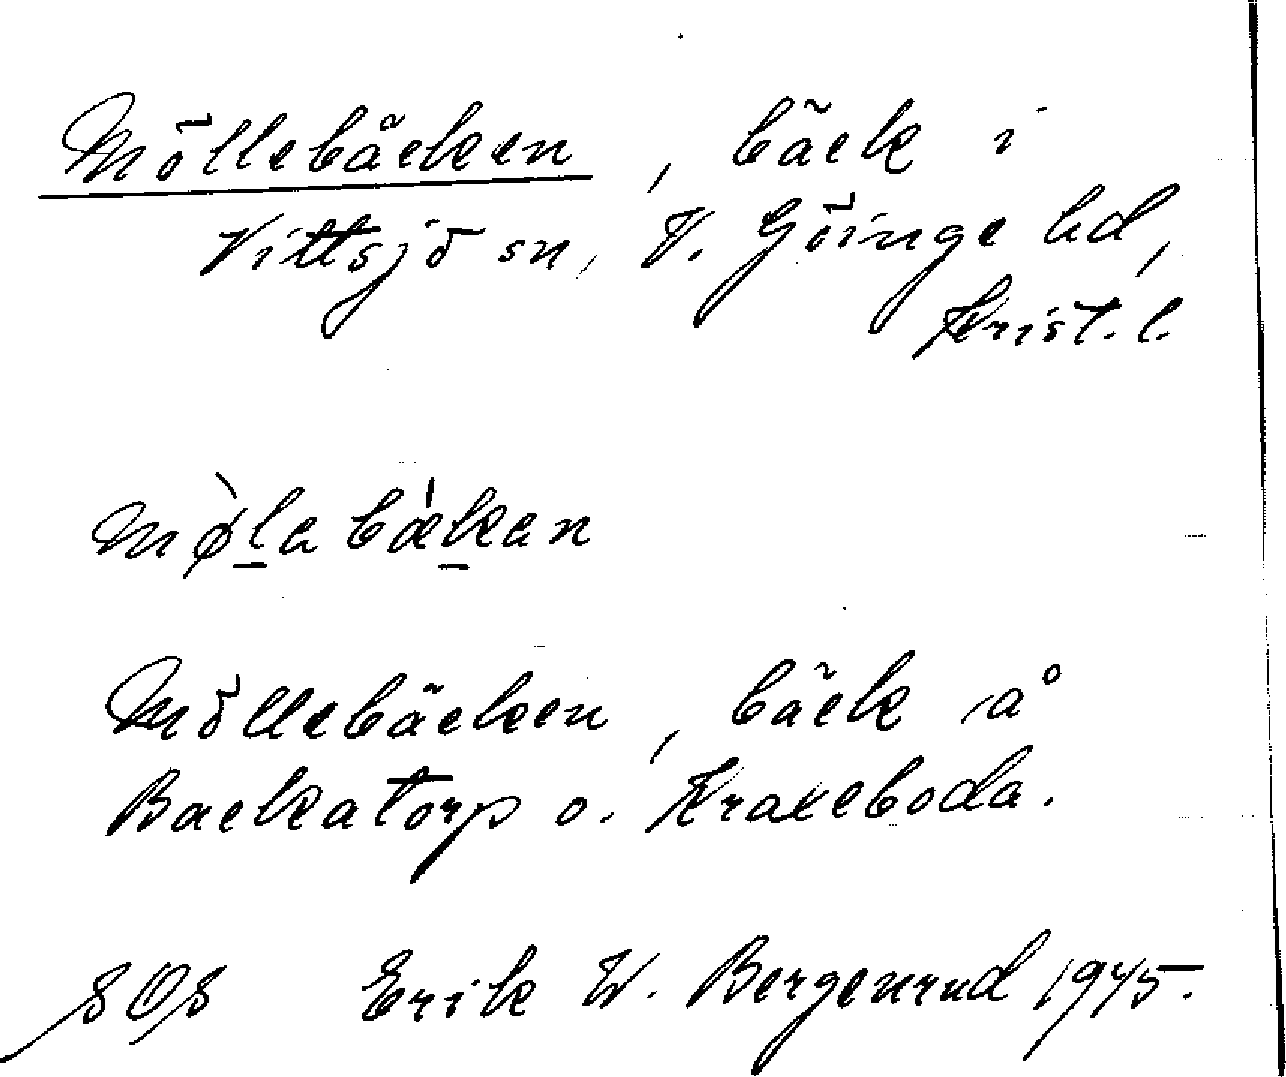 Möllebäcken, bäck i
Vittsjö sn, V. Göinge hd,
Krist. l.
mø̀la bǽkan
Möllebäcken, bäck å
Backatorp o. Kraxeboda.
SOS Erik W. Bergenrud 1945.